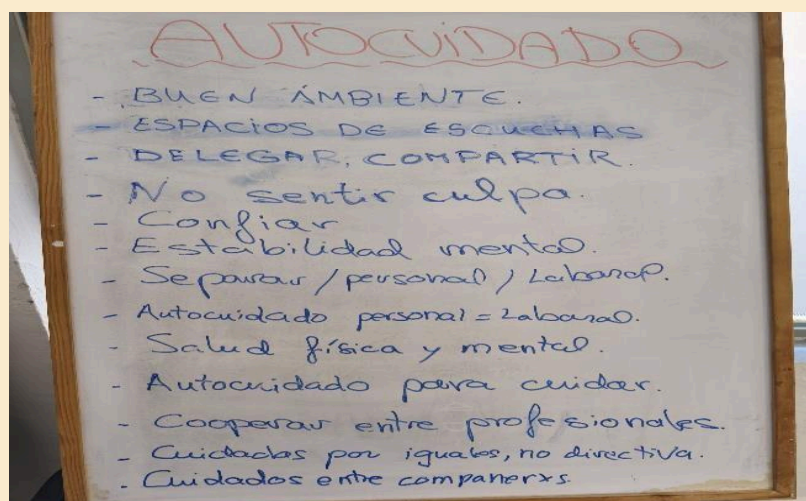 AUTOCUIDADO
- BUEN AMBIENTE.
- ESPACIOS DE ESCUCHAS
- DELEGAR, COMPARTIR.
- No sentir culpa.
- Confiar
- Estabilidad mental.
- Separar / personal / Laboral.
- Autocuidado personal = Laboral.
- Salud física y mental.
- Autocuidado para cuidar.
- Cooperar entre profesionales.
- Cuidados por iguales, no directiva.
- Cuidados entre companerxs.